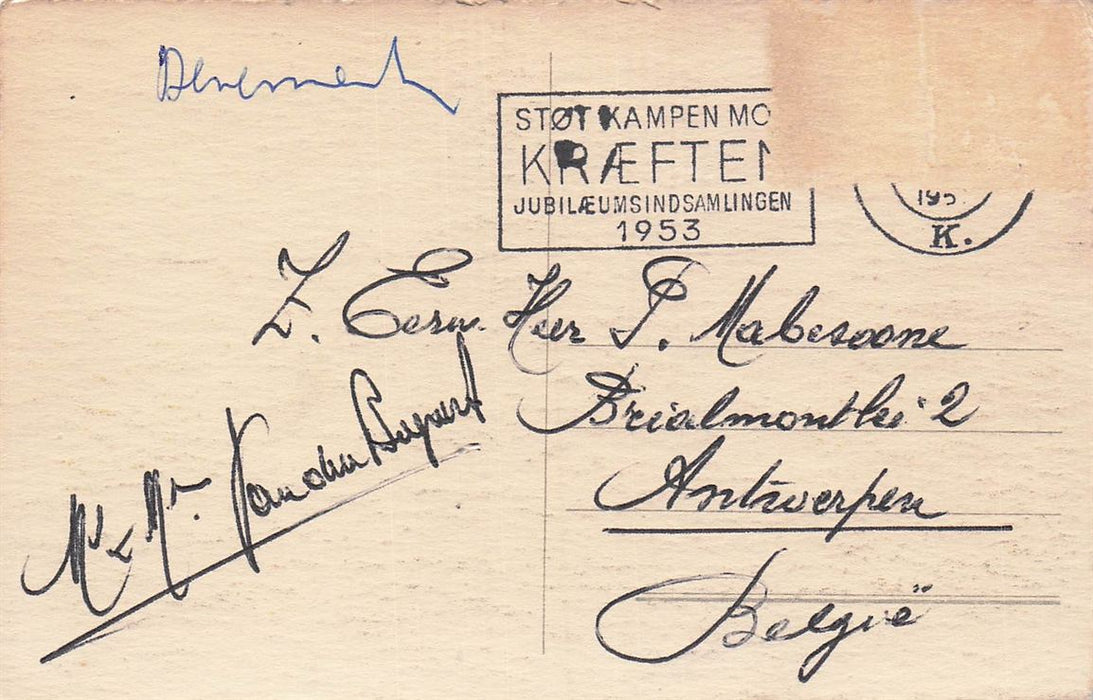 Denemark
STØT KAMPEN MO
KRÆFTEN
JUBILÆUMSINDSAMLINGEN
1953
195
K.
Z. Eerw. Heer P. Mabesoone
Brialmontlei 2
Antwerpen
België
Mr & Mr. Van den Bogaert